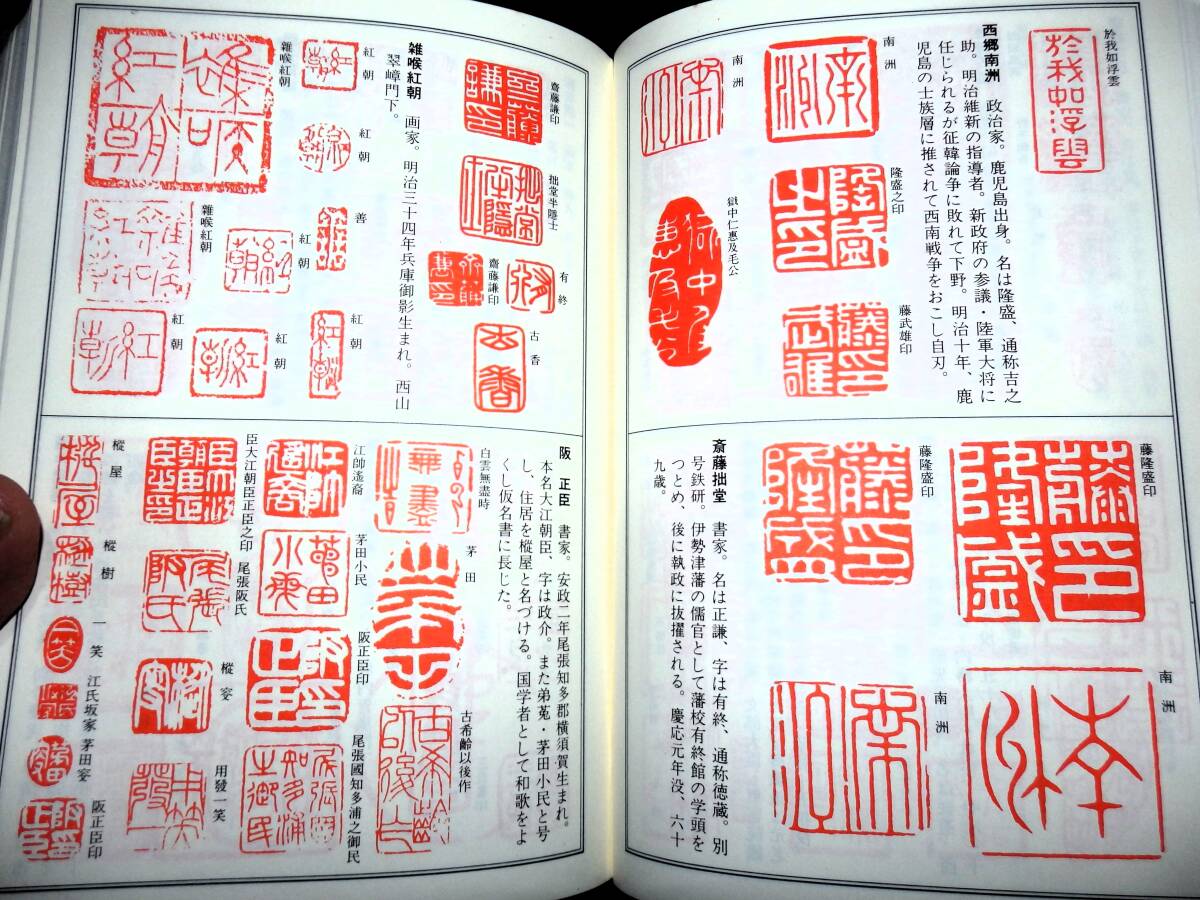 於我如浮雲
於我如浮雲
西郷南洲　政治家。鹿児島出身。名は隆盛、通称吉之
助。明治維新の指導者。新政府の参議・陸軍大将に
任じられるが征韓論争に敗れて下野。明治十年、鹿
児島の士族層に推されて西南戦争をおこし自刃。
南洲
隆盛之印
藤武雄印
南洲
獄中仁惠及毛公
藤隆盛印
南洲
藤隆盛印
南洲
斎藤拙堂　書家。名は正謙、字は有終、通称徳蔵。別
号鉄研。伊勢津藩の儒官として藩校有終館の学頭を
つとめ、後に執政に抜擢される。慶応元年没、六十
九歳。
齋藤謙印
拙堂半隱士
有終
齋藤謙印
古香
雑喉紅朝　画家。明治三十四年兵庫御影生まれ。西山
翠嶂門下。
紅朝
紅朝
善
紅朝
紅朝
紅朝
雜喉紅朝
雜喉紅朝
紅朝
阪　正臣　書家。安政二年尾張知多郡横須賀生まれ。
本名大江朝臣、字は政介。また弟菟・茅田小民と号
し、住居を樅屋と名づける。国学者として和歌をよ
くし仮名書に長じた。
白雲無盡時
茅田
古希齢以後作
江帥遙裔
茅田小民
阪正臣印
尾張國知多浦之御民
臣大江朝臣正臣之印
尾張阪氏
樅㝔
用發一笑
樅屋
樅樹
一笑
江氏坂家
茅田㝔
阪正臣印